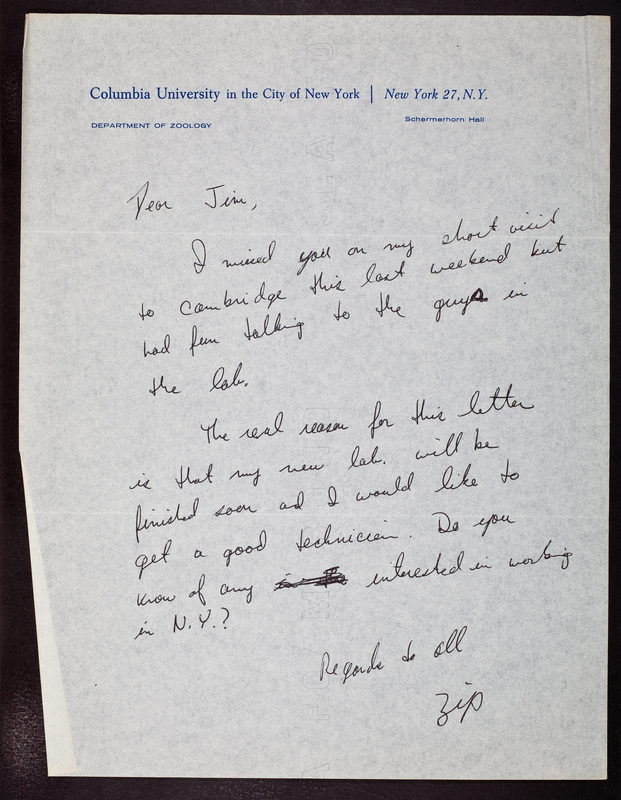 Columbia University in the City of New York | New York 27, N.Y.
DEPARTMENT OF ZOOLOGY
Schermerhorn Hall
Dear Jim,
I missed you on my short visit
to Cambridge this last weekend but
had fun talking to the guys in
the lab.
The real reason for this letter
is that my new lab. will be
finished soon and I would like to
get a good technician. Do you
know of any interested in working
in N.Y.?
Regards to all
Zip